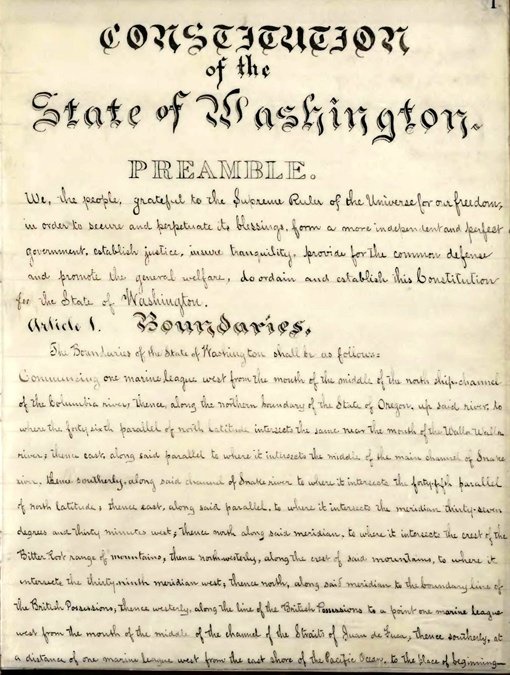 1
CONSTITUTION
of the
State of Washington.
PREAMBLE.
We, the people, grateful to the Supreme Ruler of the Universe for our freedom,
in order to secure and perpetuate its blessings, form a more independent and perfect
government, establish justice, insure tranquility, provide for the common defense
and promote the general welfare, do ordain and establish this Constitution
for the State of Washington.
Article 1. Boundaries.
The Boundaries of the State of Washington shall be as follows:
Commencing one marine league west from the mouth of the middle of the north ship-channel
of the Columbia river; thence, along the northern boundary of the State of Oregon, up said river, to
where the forty sixth parallel of north latitude intersects the same near the mouth of the Walla Walla
river; thence east, along said parallel to where it intersects the middle of the main channel of Snake
river, thence southerly, along said channel of Snake river to where it intersects the forty-fifth parallel
of north latitude; thence east, along said parallel, to where it intersects the meridian thirty-seven
degrees and thirty minutes west; thence north along said meridian, to where it intersects the crest of the
Bitter Root range of mountains, thence northwesterly, along the crest of said mountains, to where it
intersects the thirty-ninth meridian west; thence north, along said meridian to the boundary line of
the British Possessions; thence westerly, along the line of the British Possessions to a point one marine league
west from the mouth of the middle of the channel of the Straits of Juan de Fuca, thence southerly, at
a distance of one marine league west from the east shore of the Pacific Ocean, to the place of beginning—